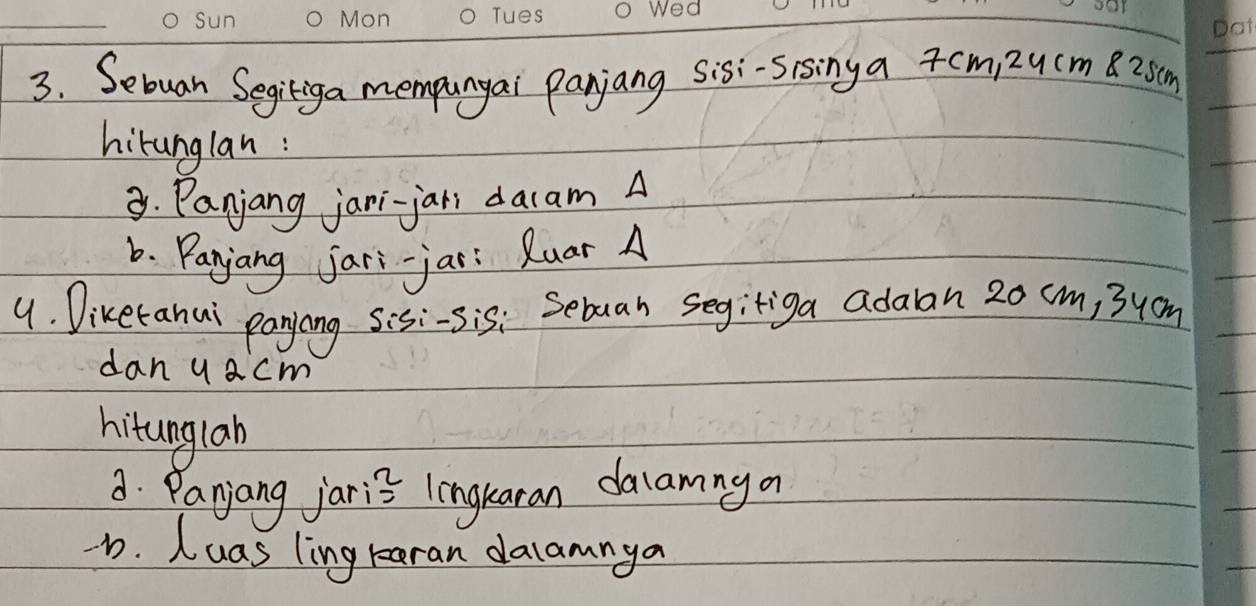 Sun Mon Tues Wed
Dat
3. Sebuah Segitiga mempunyai Panjang Sisi-Sisinya 7cm, 24cm & 25cm
hitunglah :
a. Panjang jari-jari dalam Δ
b. Panjang jari-jari luar Δ
4. Diketahui panjang sisi-sisi Sebuah segitiga adalah 20 cm, 34cm
dan 42cm
hitunglah
a. Panjang jari² lingkaran dalamnya
b. Luas lingkaran dalamnya